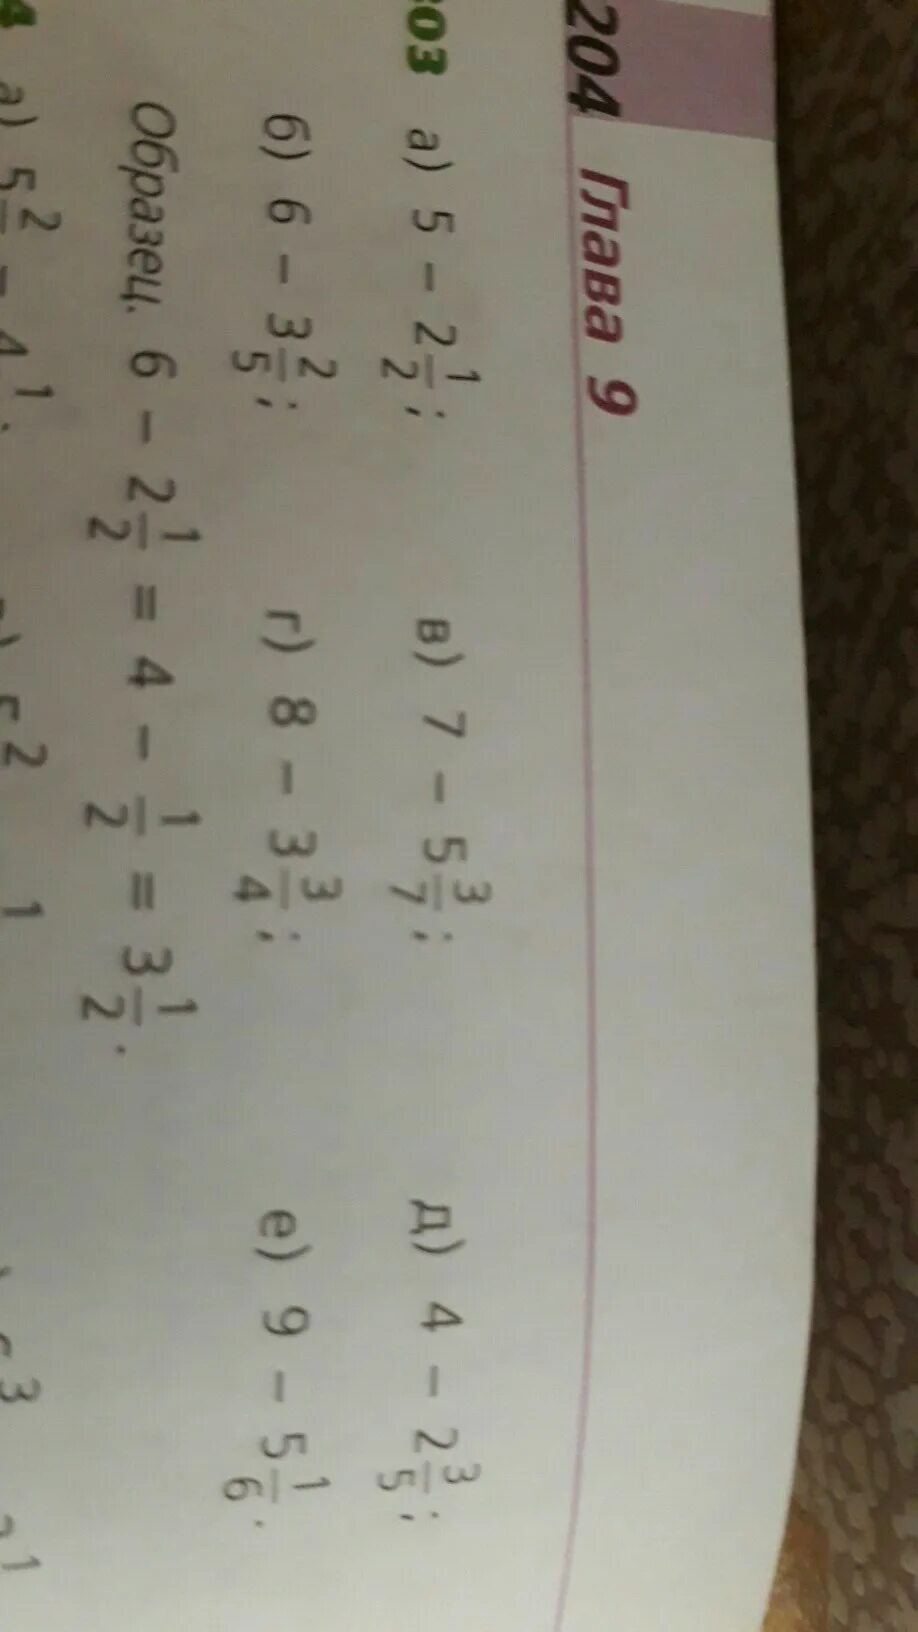 204 Глава 9
03 а) 5 − 2 1/2; в) 7 − 5 3/7; д) 4 − 2 3/5;
б) 6 − 3 2/5; г) 8 − 3 3/4; е) 9 − 5 1/6.
Образец. 6 − 2 1/2 = 4 − 1/2 = 3 1/2.